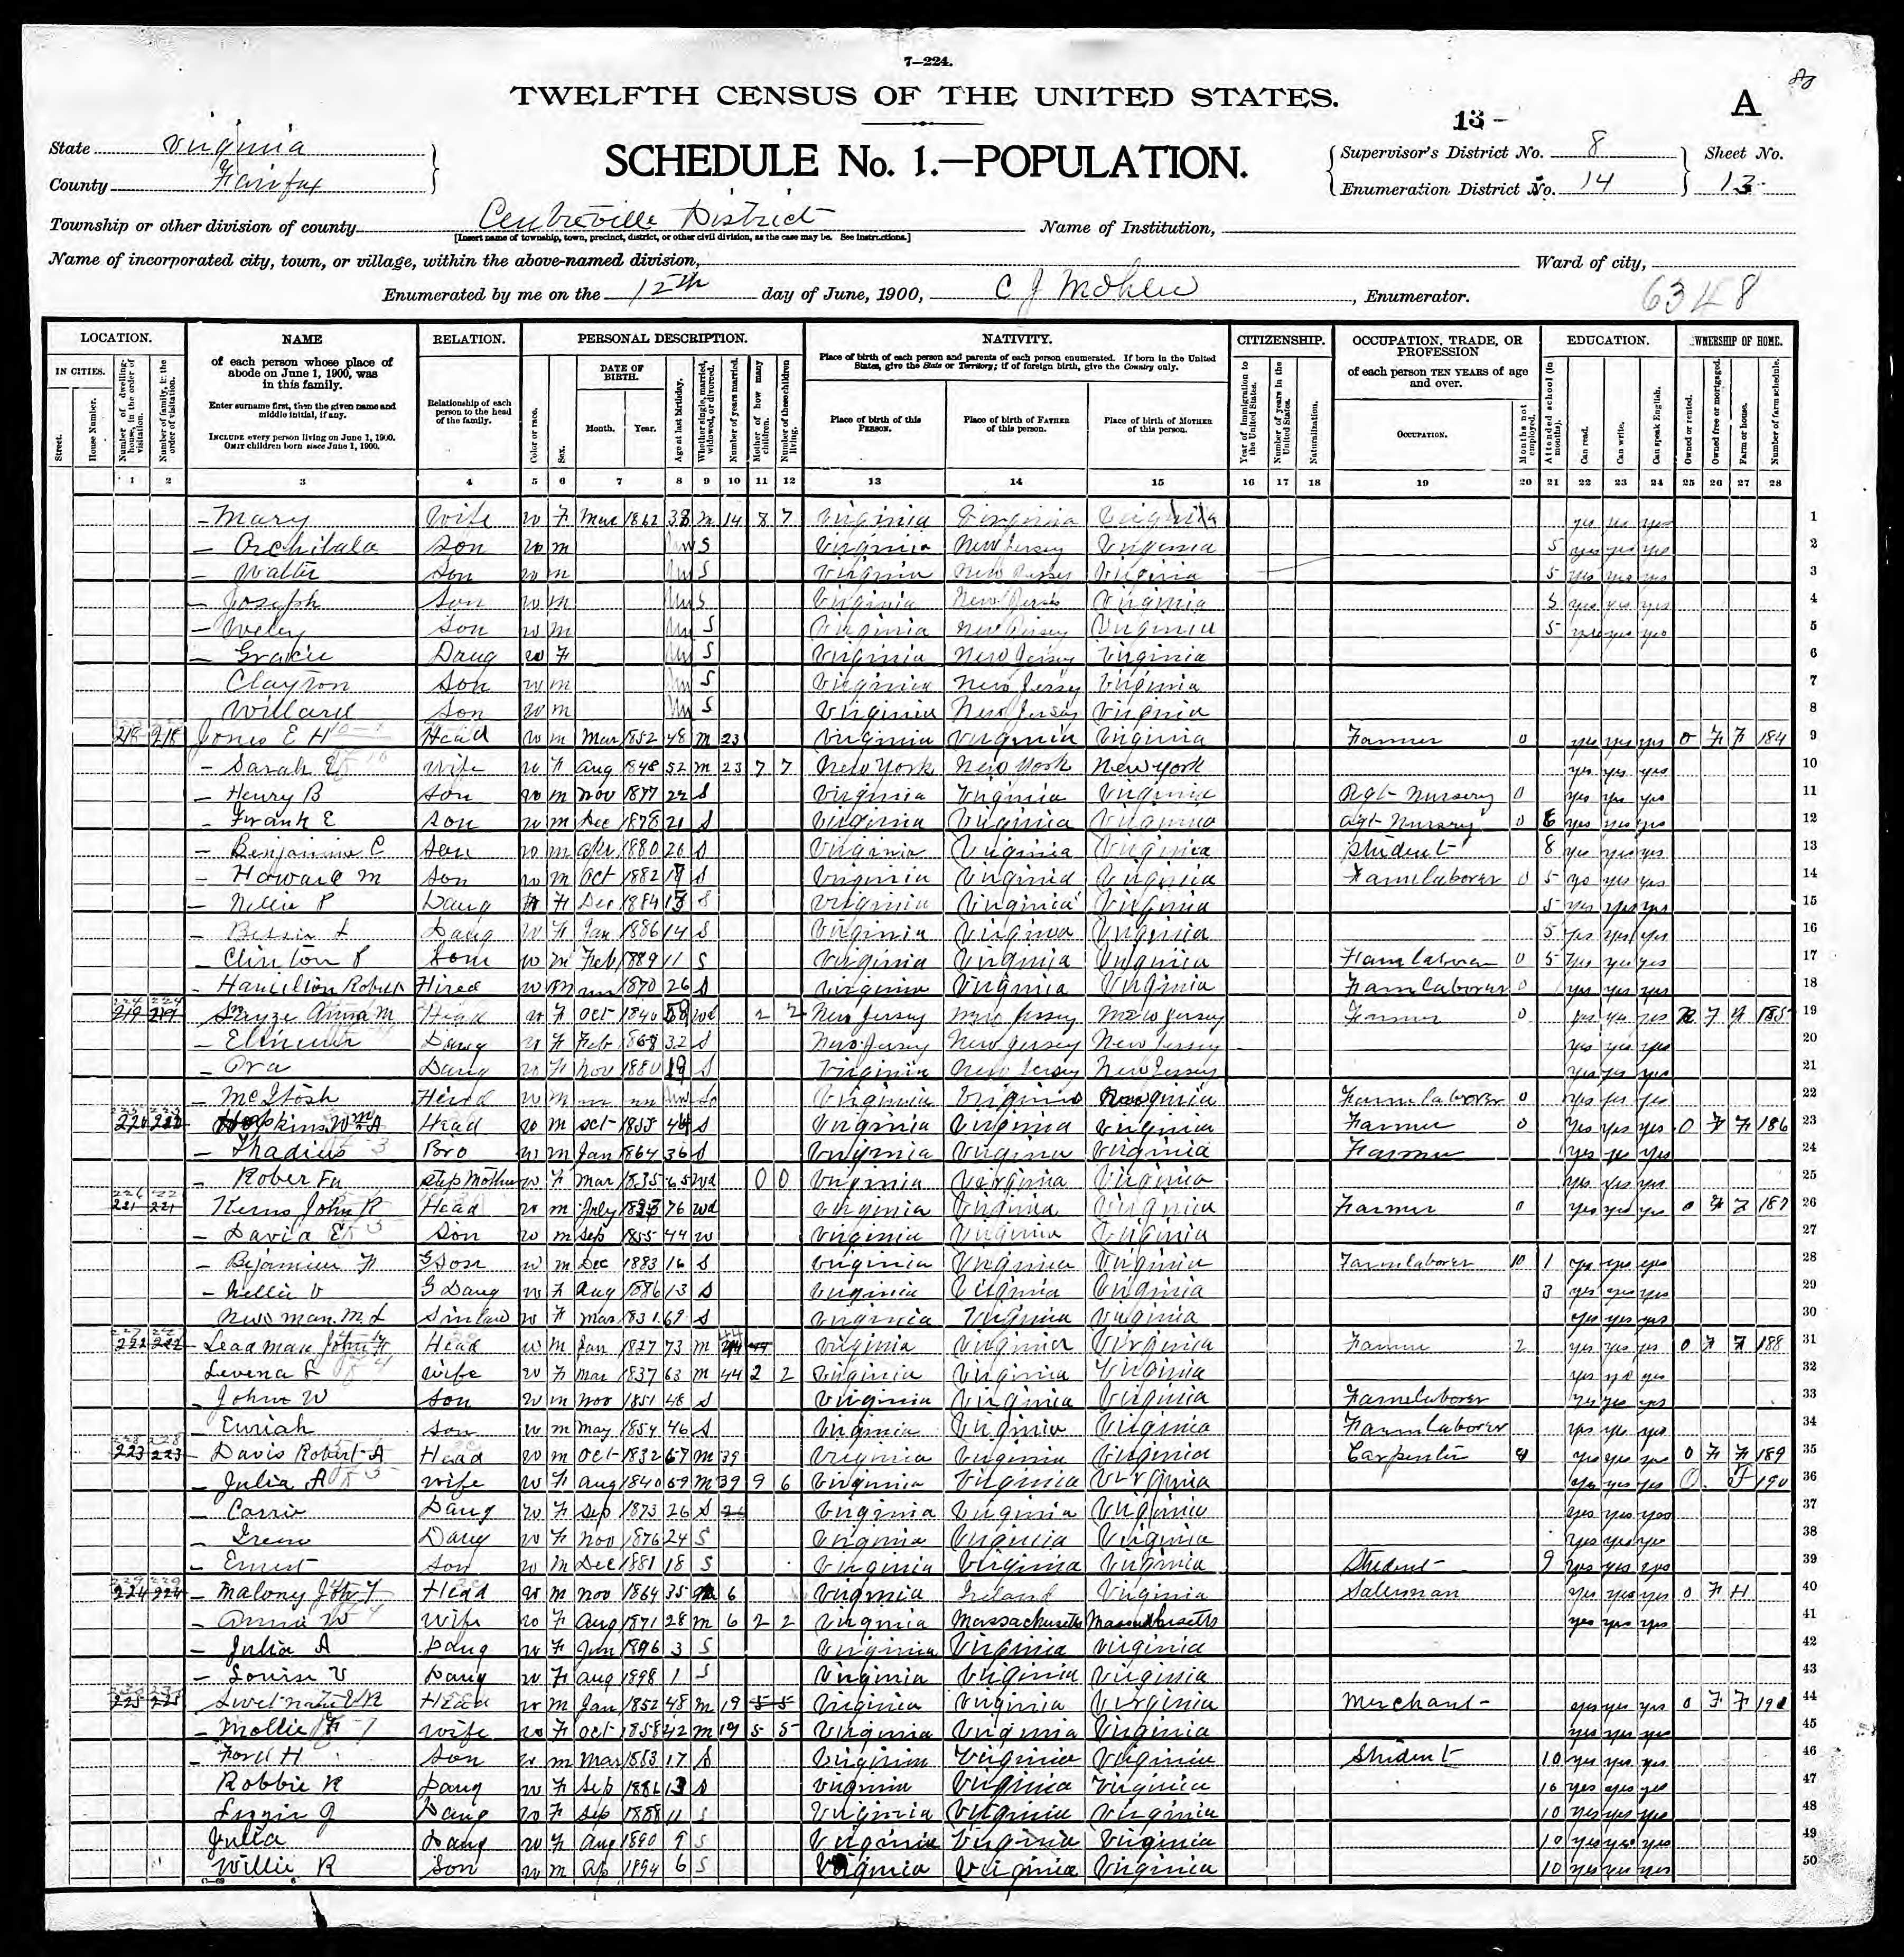 7—224.
TWELFTH CENSUS OF THE UNITED STATES.
A
13 -
State Virginia
County Fairfax
SCHEDULE No. 1.—POPULATION.
Supervisor's District No. 8
Enumeration District No. 14
Sheet No.
13
Township or other division of county Centreville District
[Insert name of township, town, precinct, district, or other civil division, as the case may be. See instructions.]
Name of Institution,
Name of incorporated city, town, or village, within the above-named division,
Ward of city,
Enumerated by me on the 12th day of June, 1900, C J Mohler, Enumerator.
LOCATION. NAME RELATION. PERSONAL DESCRIPTION. NATIVITY. CITIZENSHIP. OCCUPATION, TRADE, OR PROFESSION EDUCATION. OWNERSHIP OF HOME.
IN CITIES.
Street.
House Number.
Number of dwelling-house, in the order of visitation.
Number of family, in the order of visitation.
of each person whose place of abode on June 1, 1900, was in this family.
Enter surname first, then the given name and middle initial, if any.
INCLUDE every person living on June 1, 1900.
OMIT children born since June 1, 1900.
Relationship of each person to the head of the family.
Color or race.
Sex.
DATE OF BIRTH.
Month. Year.
Age at last birthday.
Whether single, married, widowed, or divorced.
Number of years married.
Mother of how many children.
Number of these children living.
Place of birth of each person and parents of each person enumerated. If born in the United States, give the State or Territory; if of foreign birth, give the Country only.
Place of birth of this PERSON.
Place of birth of FATHER of this person.
Place of birth of MOTHER of this person.
Year of immigration to the United States.
Number of years in the United States.
Naturalization.
of each person TEN YEARS of age and over.
OCCUPATION.
Months not employed.
Attended school (in months).
Can read.
Can write.
Can speak English.
Owned or rented.
Owned free or mortgaged.
Farm or house.
Number of farm schedule.
1 2 3 4 5 6 7 8 9 10 11 12 13 14 15 16 17 18 19 20 21 22 23 24 25 26 27 28
— Mary Wife W F Mar 1862 38 M 14 8 7 Virginia Virginia Virginia yes yes yes 1
— Archibald Son W M S Virginia New Jersey Virginia 5 yes yes yes 2
— Walter Son W M S Virginia New Jersey Virginia 5 yes yes yes 3
— Joseph Son W M S Virginia New Jersey Virginia 5 yes yes yes 4
— Son W M S Virginia New Jersey Virginia 5 yes yes yes 5
— Gracie Daug W F S Virginia New Jersey Virginia 6
Clayton Son W M S Virginia New Jersey Virginia 7
Willard Son W M S Virginia New Jersey Virginia 8
218 218 Jones E H Head W M Mar 1852 48 M 23 Virginia Virginia Virginia Farmer 0 yes yes yes O F F 184 9
— Sarah E Wife W F Aug 1848 52 M 23 7 7 New York New York New York yes yes yes 10
— Henry B Son W M Nov 1877 22 S Virginia Virginia Virginia Agt Nursery 0 yes yes yes 11
— Frank E Son W M Dec 1878 21 S Virginia Virginia Virginia Agt Nursery 0 yes yes yes 12
— Benjamin C Son W M Apr 1880 20 S Virginia Virginia Virginia Student 8 yes yes yes 13
— Howard M Son W M Oct 1882 S Virginia Virginia Virginia Farm laborer 0 5 yes yes 14
— Nellie P Daug F Dec 1884 15 S Virginia Virginia Virginia 5 yes yes yes 15
— Bessie L Daug W F Jan 1886 14 S Virginia Virginia Virginia 5 yes yes yes 16
— Clinton P Son W M Feb 1889 11 S Virginia Virginia Virginia Farm laborer 0 5 yes yes yes 17
— Hamilton Robert Hired W M 1870 26 S Virginia Virginia Virginia Farm laborer 0 yes yes yes 18
219 219 Anna M Head W F Oct 1840 Wd 2 2 New Jersey New Jersey New Jersey Farmer 0 yes yes yes R F 185 19
— Daug W F Feb 1868 32 S New Jersey New Jersey New Jersey yes yes yes 20
— Ora Daug W F Nov 1880 19 S Virginia New Jersey New Jersey yes yes yes 21
— McItosh Head W M Virginia Virginia Virginia Farm laborer 0 yes yes yes 22
220 220 Hopkins Wm A Head W M Oct 1855 44 S Virginia Virginia Virginia Farmer 0 yes yes yes O F F 186 23
— Thadius Bro W M Jan 1864 36 S Virginia Virginia Virginia Farmer yes yes yes 24
— Roberta Step Mother W F Mar 1835 65 Wd 0 0 Virginia Virginia Virginia yes yes yes 25
221 221 Kerns John R Head W M July 76 Wd Virginia Virginia Virginia Farmer 0 yes yes yes O F F 187 26
— David E Son W M Sep 1855 44 W Virginia Virginia Virginia 27
— Bejamin F G Son W M Dec 1883 16 S Virginia Virginia Virginia Farm laborer 10 1 yes yes yes 28
— Nellie V G Daug W F Aug 1886 13 S Virginia Virginia Virginia 3 yes yes yes 29
Newman M L S in law W F Mar 1831 69 S Virginia Virginia Virginia yes yes yes 30
222 222 Leadman John H Head W M Jan 1827 73 M 44 Virginia Virginia Virginia Farmer 2 yes yes yes O F F 188 31
Levena Wife W F Mar 1837 63 M 44 2 2 Virginia Virginia Virginia yes no yes 32
— John W Son W M Nov 1851 48 S Virginia Virginia Virginia Farm laborer yes yes yes 33
— Euriah Son W M May 1854 46 S Virginia Virginia Virginia Farm laborer yes yes yes 34
223 223 Davis Robert A Head W M Oct 1832 67 M 39 Virginia Virginia Virginia Carpenter 4 yes yes yes O F F 189 35
— Julia A Wife W F Aug 1840 59 M 39 9 6 Virginia Virginia Virginia yes yes yes O F 190 36
— Carrie Daug W F Sep 1873 26 S Virginia Virginia Virginia yes yes yes 37
— Daug W F Nov 1876 24 S Virginia Virginia Virginia yes yes yes 38
— Ernest Son W M Dec 1881 18 S Virginia Virginia Virginia Student 9 yes yes yes 39
224 224 — Malony John T Head W M Nov 1864 35 M 6 Virginia Ireland Virginia Salesman yes yes yes O F H 40
— Annie W Wife W F Aug 1871 28 M 6 2 2 Virginia Massachusetts Massachusetts yes yes yes 41
— Julia A Daug W F Jun 1896 3 S Virginia Virginia Virginia 42
— Louise V Daug W F Aug 1898 1 S Virginia Virginia Virginia 43
225 225 Head W M Jan 1852 48 M 19 5 5 Virginia Virginia Virginia Merchant yes yes yes O F F 191 44
— Mollie F Wife W F Oct 1858 42 M 19 5 5 Virginia Virginia Virginia yes yes yes 45
— Ford H Son W M Mar 1883 17 S Virginia Virginia Virginia Student 10 yes yes yes 46
Robbie R Daug W F Sep 1886 13 S Virginia Virginia Virginia 10 yes yes yes 47
Lizzie G Daug W F Sep 1888 11 S Virginia Virginia Virginia 10 yes yes yes 48
Julia Daug W F Aug 1890 9 S Virginia Virginia Virginia 10 yes yes yes 49
Willie R Son W M Ap 1894 6 S Virginia Virginia Virginia 10 yes yes yes 50